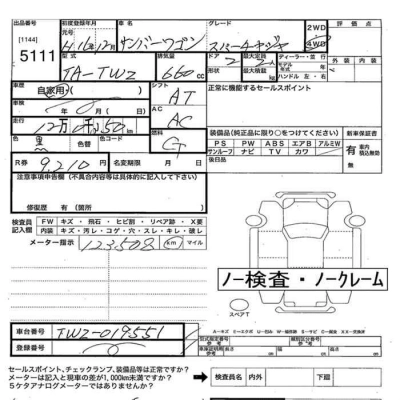 出品番号 初度登録年月 車名 グレード 評価点
[1144] 元号 H.16年12月 サンバーワゴン スーパーチャージャ 2WD 4WD
5111 型式 排気量 ドア 最大定員 ディーラー・並行 外装 内装
TA-TW2 660cc 2 最大積載 kg モデル年式 年
ハンドル 左・右
車歴 自家用 シフト AT 正常に機能するセールスポイント
車検 年 月 エアコン AC
走行 12万0千350km
色 黒 色替 燃料 G 装備品(純正品に限り○をつけてください) 新車保証書
PS PW ABS エアB アルミW 有 無
サンルーフ ナビ TV カワ 車内積込無効
R券 9,210 名変期限 月 日 後日品
注意事項申告欄(不具合内容等は具体的に記入して下さい)
修復歴 有 (箇所)
検査員記入欄 FW キズ・飛石・ヒビ割・リペア跡・X要
内装 キズ・汚レ・コゲ・穴・スレ・キレ・破レ
メーター指示 123,508 km マイル
ノー検査・ノークレーム
スペアT
車台番号 TW2-019551
登録番号
セールスポイント、チェックランプ、装備品等は正常ですか?
メーターは記入と現車の差が1,000km未満ですか?
5ケタアナログメーターではありませんか?
検査員名 内外 下廻